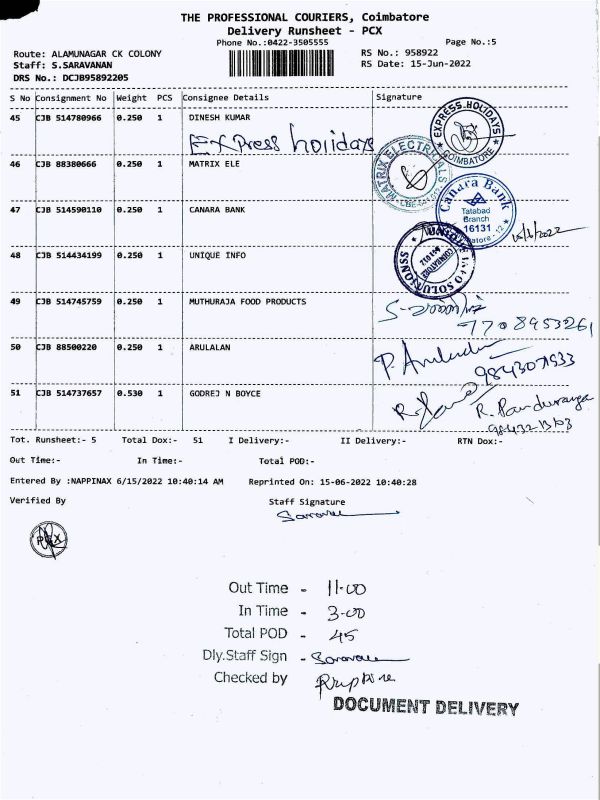 THE PROFESSIONAL COURIERS, Coimbatore
Delivery Runsheet - PCX
Phone No.:0422-3505555
Page No.:5
Route: ALAMUNAGAR CK COLONY
RS No.: 958922
Staff: S.SARAVANAN
RS Date: 15-Jun-2022
DRS No.: DCJB95892205
S No Consignment No Weight PCS Consignee Details Signature
45 CJB 514780966 0.250 1 DINESH KUMAR
Express holidays
EXPRESS HOLIDAYS
COIMBATORE
46 CJB 88380666 0.250 1 MATRIX ELE
MATRIX ELECTRICALS
47 CJB 514590110 0.250 1 CANARA BANK
Canara Bank
Tatabad
Branch
16131
15/6/2022
48 CJB 514434199 0.250 1 UNIQUE INFO
UNIQUE INFO SOLUTIONSS
COIMBATORE
641012
49 CJB 514745759 0.250 1 MUTHURAJA FOOD PRODUCTS
7708953261
50 CJB 88500220 0.250 1 ARULALAN
P. Arulalan
51 CJB 514737657 0.530 1 GODREJ N BOYCE
R. Panduranga
Tot. Runsheet:- 5 Total Dox:- 51 I Delivery:- II Delivery:- RTN Dox:-
Out Time:- In Time:- Total POD:-
Entered By :NAPPINAX 6/15/2022 10:40:14 AM Reprinted On: 15-06-2022 10:40:28
Verified By Staff Signature
PCX
Out Time - 11-00
In Time - 3-00
Total POD - 45
Dly.Staff Sign -
Checked by
DOCUMENT DELIVERY